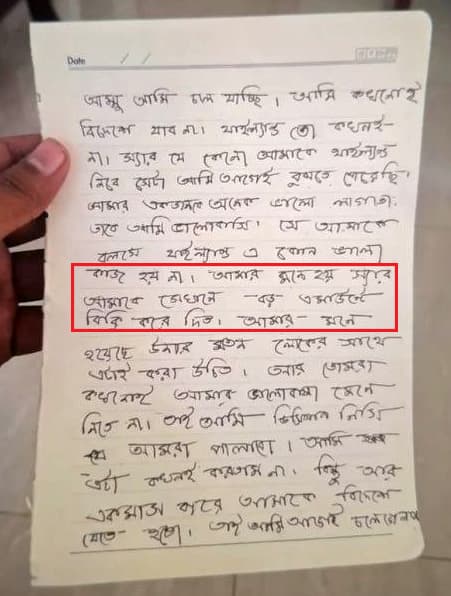 Date / /
আম্মু আমি চলে যাচ্ছি। আমি কখনোই
বিদেশে যাব না। থাইল্যান্ড তো কখনই
না। স্যার যে কেনো আমাকে থাইল্যান্ড
নিবে সেটা আমি আগেই বুঝতে পেরেছি।
আমার একজনকে অনেক ভালো লাগতো।
তাকে আমি ভালোবাসি। সে আমাকে
বলসে থাইল্যান্ড এ কোন ভালো
কাজ হয় না। আমার মনে হয় স্যার
আমাকে সেখানে বড় এমাউন্টে
বিক্রি করে দিত। আমার মনে
হয়েছে উনার মতন লোকের সাথে
এটাই করা উচিত। আর তোমরা
কখনোই আমার ভালোবাসা মেনে
নিতে না। তাই আমি ডিসিশন নিসি
যে আমরা পালাবো। আমি
এটা কখনই করতাম না। কিন্তু আর
একমাস পরে আমাকে বিদেশে
যেতে হতো। তাই আমি আগেই চলে গেলাম